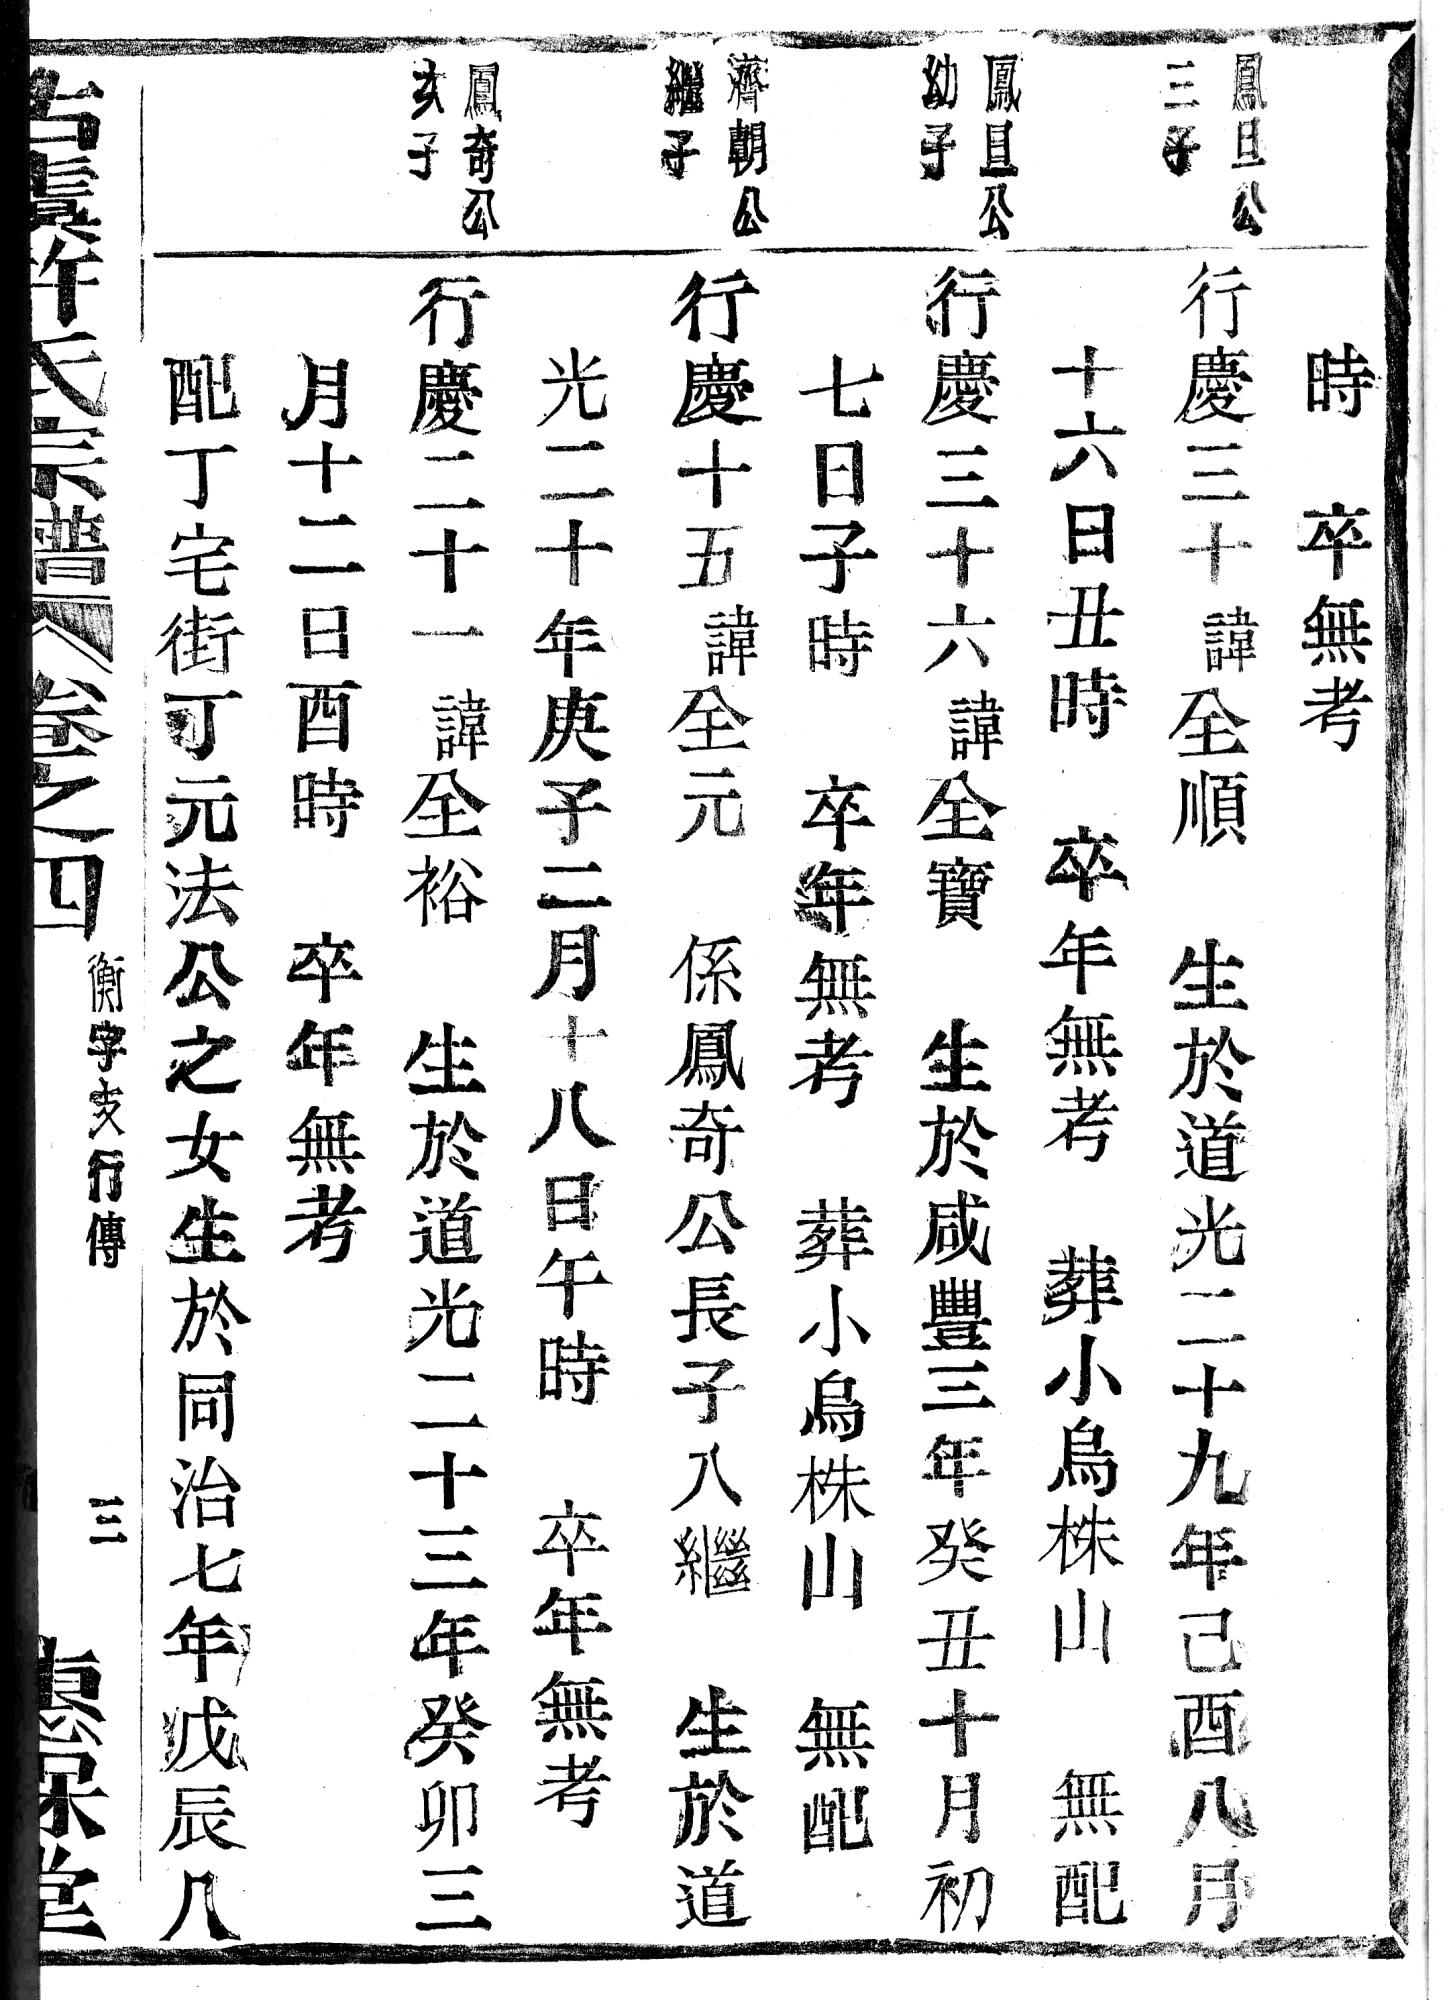 時　卒無考
鳳旦公
三子
行慶三十諱全順　生於道光二十九年己酉八月
十六日丑時　卒年無考　葬小烏株山　無配
鳳旦公
幼子
行慶三十六諱全寶　生於咸豐三年癸丑十月初
七日子時　卒年無考　葬小烏株山　無配
濟朝公
繼子
行慶十五諱全元　係鳳奇公長子入繼　生於道
光二十年庚子二月十八日午時　卒年無考
鳳奇公
次子
行慶二十一諱全裕　生於道光二十三年癸卯三
月十二日酉時　卒年無考
配丁宅街丁元法公之女生於同治七年戊辰八
古虞許氏宗譜
卷之四
衡字支行傳
三
惠保堂